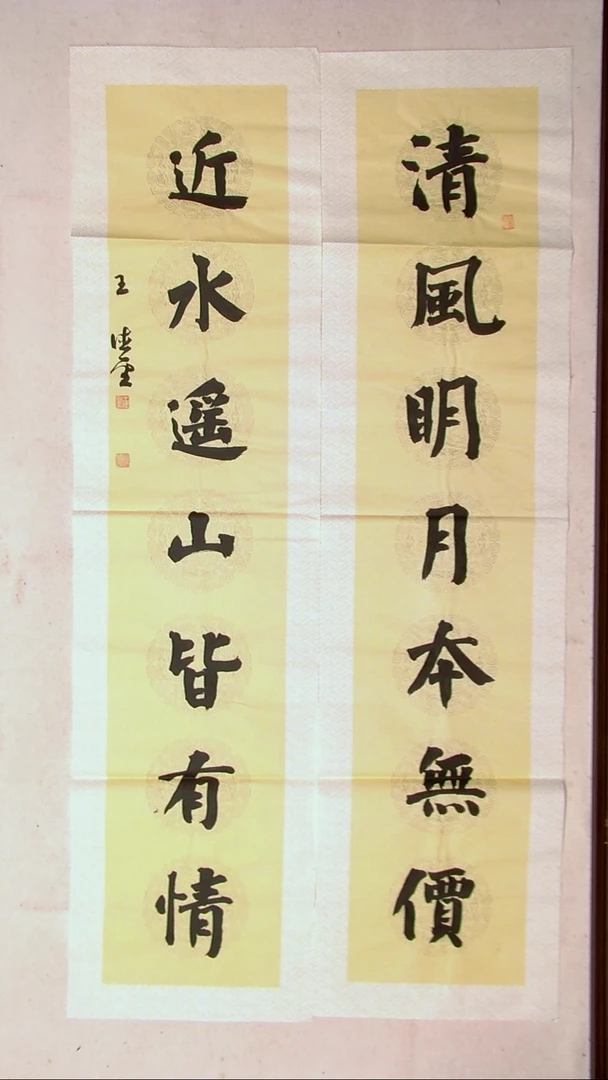 清風明月本無價
近水遥山皆有情
王